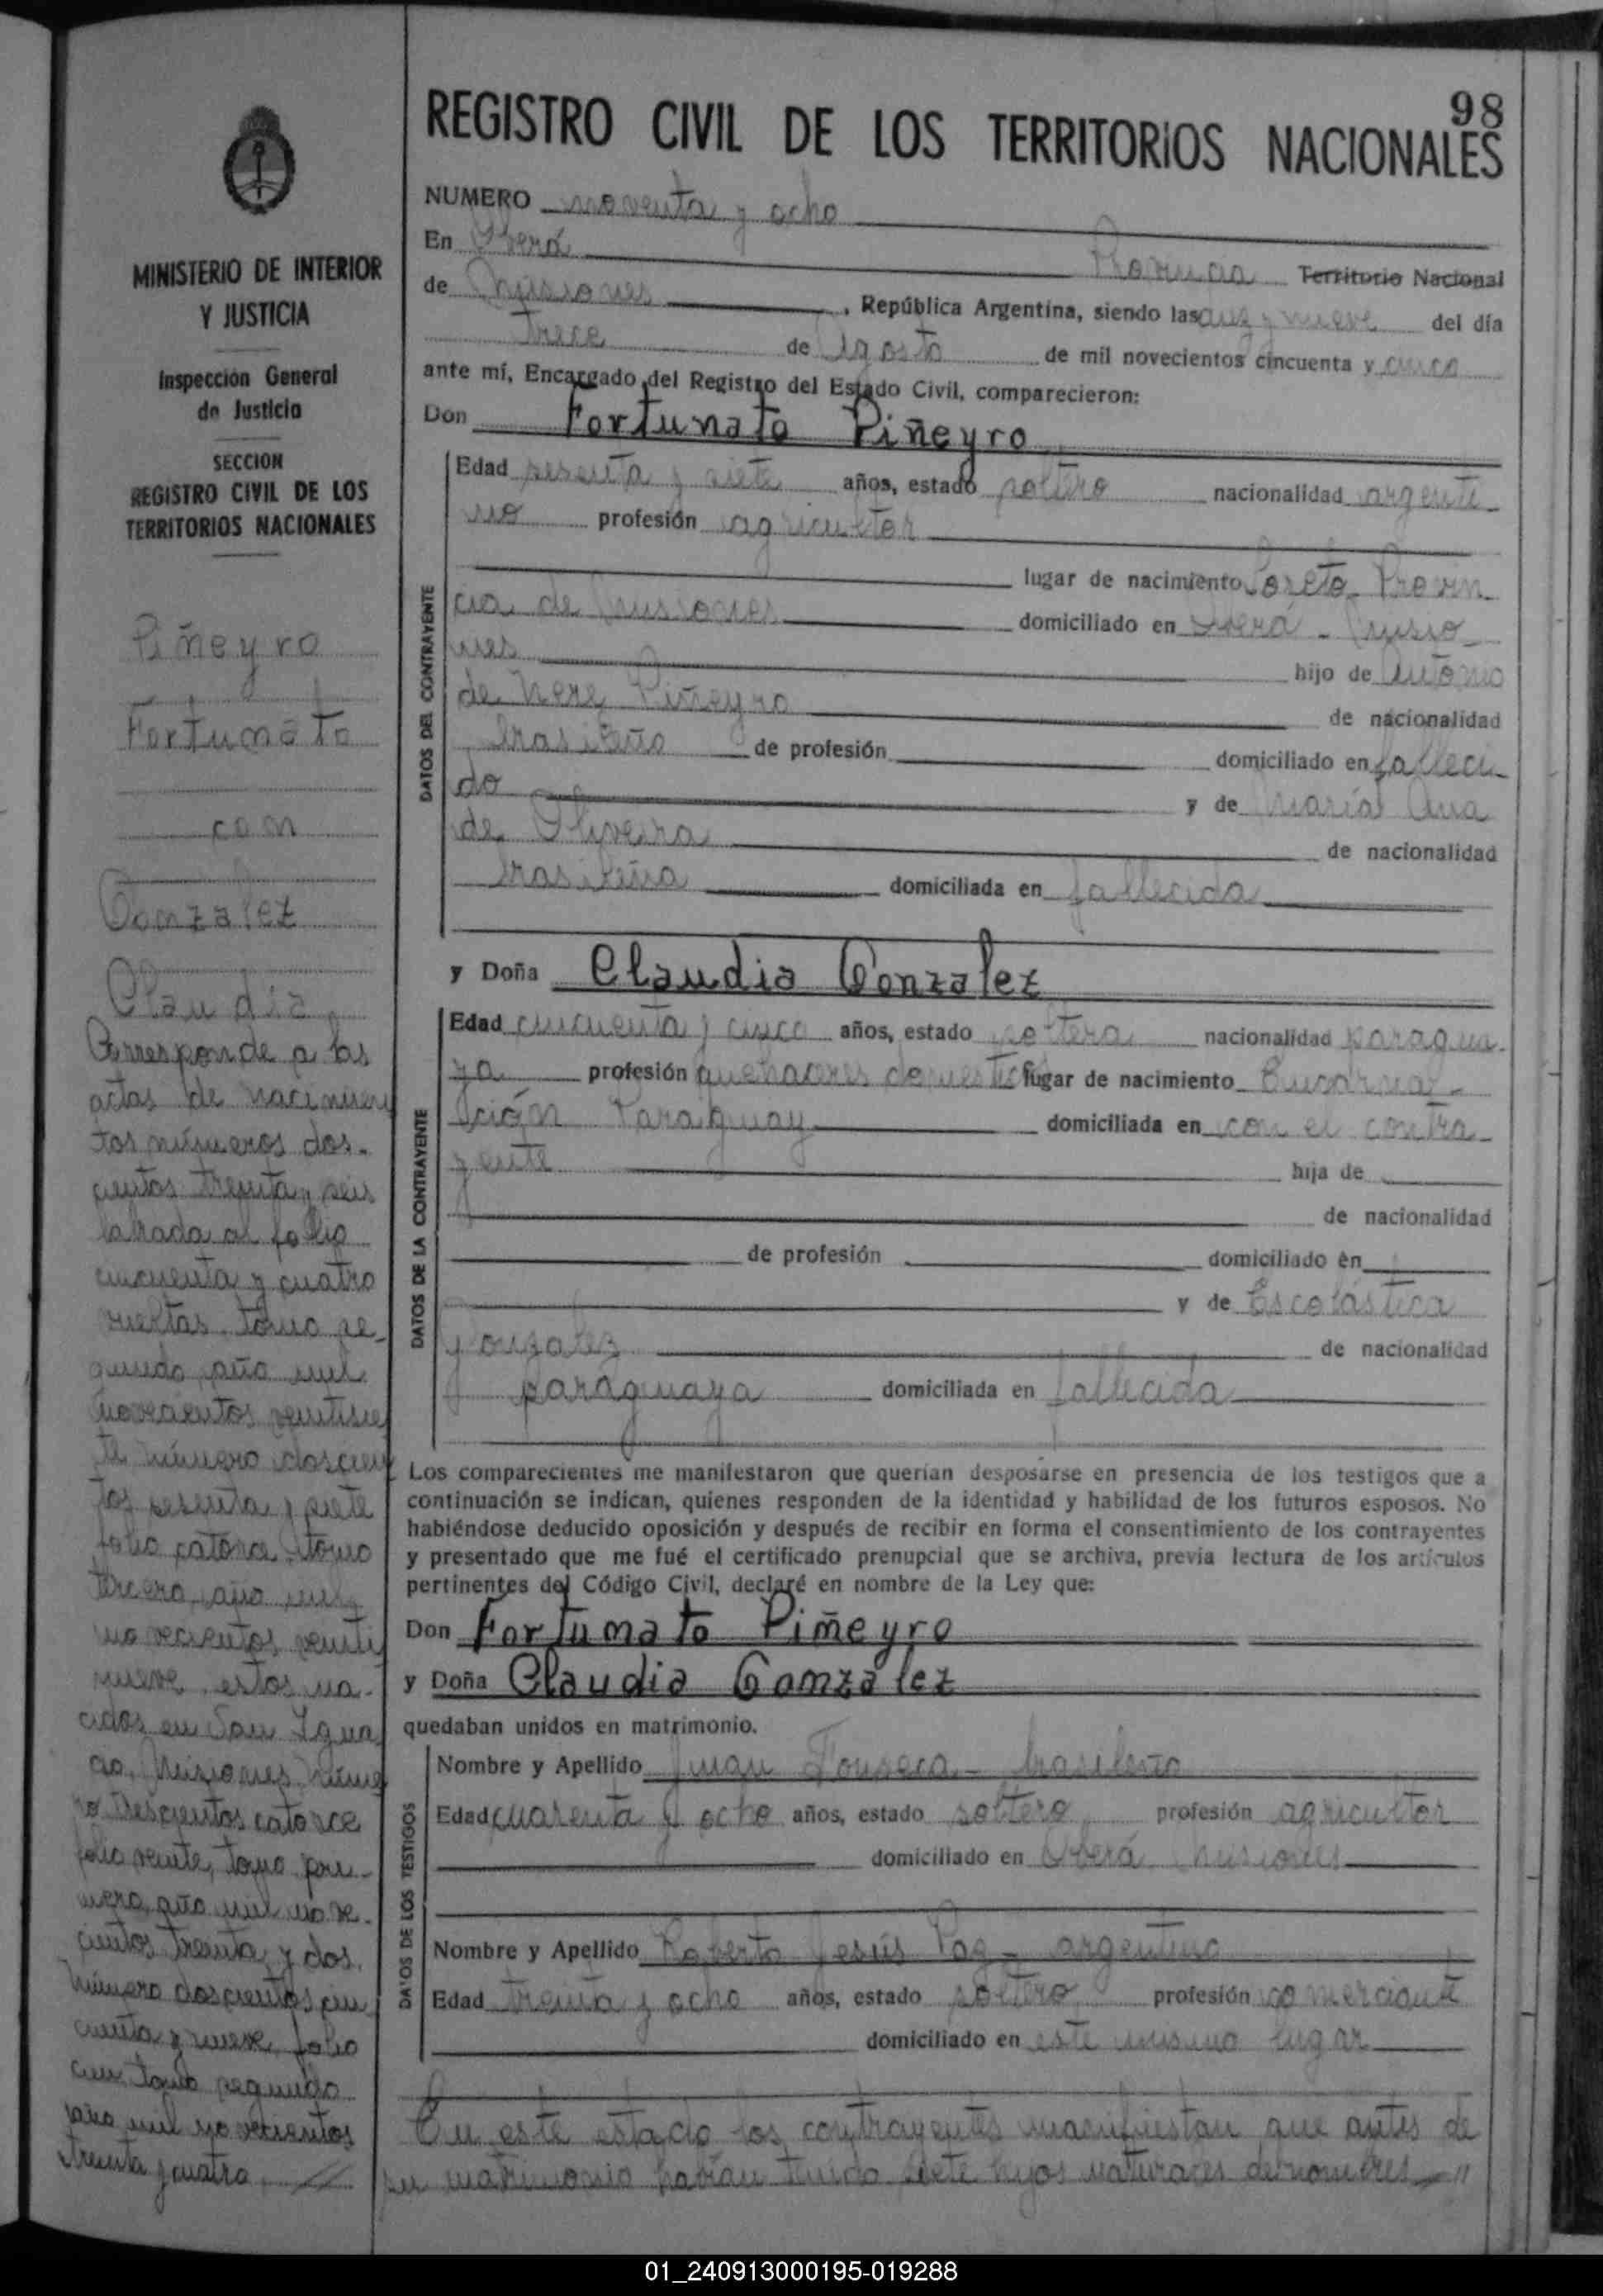 98
REGISTRO CIVIL DE LOS TERRITORIOS NACIONALES
MINISTERIO DE INTERIOR
Y JUSTICIA
Inspección General
de Justicia
SECCION
REGISTRO CIVIL DE LOS
TERRITORIOS NACIONALES
Piñeyro
Fortunato
con
Gonzalez
Claudia
Corresponde a las
actas de nacimien
tos números dos-
cientos treinta y seis
labrada al folio
cincuenta y cuatro
vueltas, tomo se-
gundo, año mil
novecientos veintisie
te número doscien
tos sesenta y siete
folio catorce, tomo
tercero, año mil
novecientos veinti
nueve, estos na-
cidos en San Igna
cio, Misiones núme
ro trescientos catorce
folio veinte, tomo pri-
mero, año mil nove-
cientos treinta y dos,
número doscientos cin
cuenta y nueve, folio
cien, tomo segundo
año mil novecientos
treinta y cuatro.
NUMERO noventa y ocho
En Oberá Provincia Territorio Nacional
de Misiones, República Argentina, siendo las diez y nueve del día
trece de Agosto de mil novecientos cincuenta y cinco
ante mí, Encargado del Registro del Estado Civil, comparecieron:
Don Fortunato Piñeyro
DATOS DEL CONTRAYENTE
Edad sesenta y siete años, estado soltero nacionalidad argenti-
no profesión agricultor
lugar de nacimiento Loreto Provin-
cia de Misiones domiciliado en Oberá - Misio-
nes hijo de Antonio
de Nere Piñeyro de nacionalidad
brasileño de profesión domiciliado en falleci-
do y de María Ana
de Oliveira de nacionalidad
brasileña domiciliada en fallecida
y Doña Claudia Gonzalez
DATOS DE LA CONTRAYENTE
Edad cincuenta y cinco años, estado soltera nacionalidad paragua-
ya profesión quehaceres domesticos lugar de nacimiento Encarna-
ción Paraguay domiciliada en con el contra-
yente hija de
de nacionalidad
de profesión domiciliado en
y de Escolástica
Gonzalez de nacionalidad
paraguaya domiciliada en fallecida
Los comparecientes me manifestaron que querían desposarse en presencia de los testigos que a
continuación se indican, quienes responden de la identidad y habilidad de los futuros esposos. No
habiéndose deducido oposición y después de recibir en forma el consentimiento de los contrayentes
y presentado que me fué el certificado prenupcial que se archiva, previa lectura de los artículos
pertinentes del Código Civil, declaré en nombre de la Ley que:
Don Fortunato Piñeyro
y Doña Claudia Gonzalez
quedaban unidos en matrimonio.
DATOS DE LOS TESTIGOS
Nombre y Apellido Juan Fonseca - brasileño
Edad cuarenta y ocho años, estado soltero profesión agricultor
domiciliado en Oberá Misiones
Nombre y Apellido Roberto Jesús Paz - argentino
Edad treinta y ocho años, estado soltero profesión comerciante
domiciliado en este mismo lugar
En este estado los contrayentes manifiestan que antes de
su matrimonio habían tenido siete hijos naturales de nombres - "
01_240913000195-019288